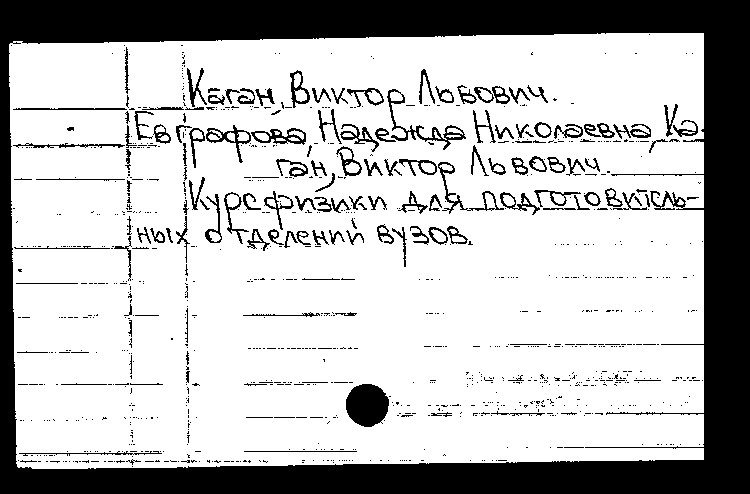 Каган, Виктор Львович.
Евграфова, Надежда Николаевна, Ка-
ган, Виктор Львович.
Курс физики для подготовитель-
ных отделений вузов.